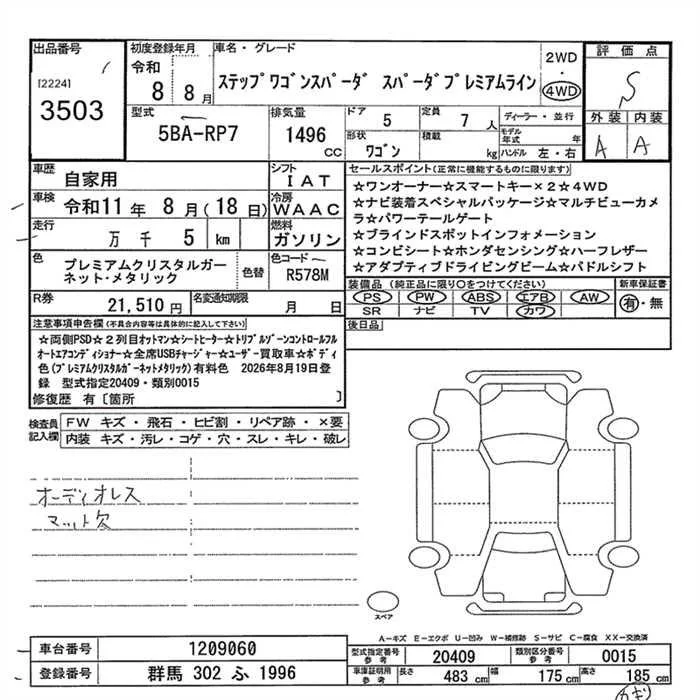 出品番号
[2224]
3503
初度登録年月
令和
8 8月
車名・グレード
ステップワゴンスパーダ スパーダプレミアムライン
2WD
・
4WD
評価点
S
外装 内装
A A
型式
5BA-RP7
排気量
1496
CC
ドア
5
定員
7 人
形状
ワゴン
積載
kg
ディーラー・並行
モデル年式 年
ハンドル 左・右
車歴
自家用
シフト
IAT
車検
令和11年 8月(18日)
冷房
WAAC
走行
万 千 5 km
燃料
ガソリン
色
プレミアムクリスタルガー
ネット・メタリック
色替
色コード
R578M
R券
21,510 円
名変通知期限
月 日
セールスポイント(正常に機能するものに限ります)
☆ワンオーナー☆スマートキー×2☆4WD
☆ナビ装着スペシャルパッケージ☆マルチビューカメ
ラ☆パワーテールゲート
☆ブラインドスポットインフォメーション
☆コンビシート☆ホンダセンシング☆ハーフレザー
☆アダプティブドライビングビーム☆パドルシフト
装備品(純正品に限り○をつけてください)
PS PW ABS エアB AW
SR ナビ TV カワ
新車保証書
有・無
後日品
注意事項申告欄(不具合内容等は具体的に記入して下さい)
☆両側PSD☆2列目オットマン☆シートヒーター☆トリプルゾーンコントロールフル
オートエアコンディショナー☆全席USBチャージャー☆ユーザー買取車☆ボディ
色(プレミアムクリスタルガーネットメタリック)有料色 2026年8月19日登
録 型式指定20409・類別0015
修復歴 有〔箇所 〕
検査員
記入欄
FW キズ・飛石・ヒビ割・リペア跡・×要
内装 キズ・汚レ・コゲ・穴・スレ・キレ・破レ
オーディオレス
マット欠
スペア
A-キズ E-エクボ U-凹み W-補修跡 S-サビ C-腐食 XX-交換済
車台番号
1209060
登録番号
群馬 302 ふ 1996
型式指定番号
参考
20409
類別区分番号
参考
0015
車庫証明用
参考
長さ 483 cm
幅 175 cm
高さ 185 cm